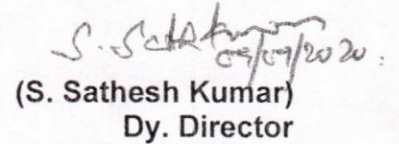 S. Sathkumar
09/09/2020.
(S. Sathesh Kumar)
Dy. Director